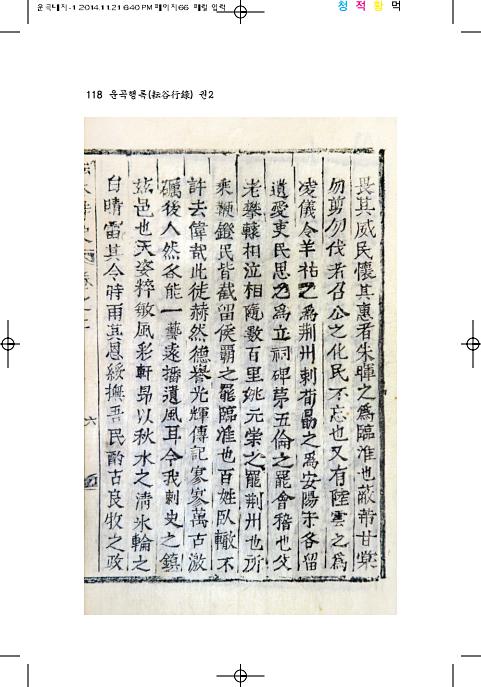 운곡내지-1 2014.11.21 6:40 PM 페이지66 매일 입력
청 적 황 먹
118 운곡행록(耘谷行錄) 권2
畏其威民懷其惠者朱暉之爲臨淮也蔽芾甘棠
勿剪勿伐者召公之化民不忘也又有陸雲之爲
凌儀令羊祜之爲荆州刺荀勗之爲安陽于各留
遺愛吏民思之爲立祠碑苐五倫之罷會稽也父
老攀轅相泣相隨數百里姚元崇之罷荆州也所
乘鞭鐙民皆截留侯覇之罷臨淮也百姓臥轍不
許去偉哉此徒赫然德譽光輝傳記寥寥萬古激
礪後人然各能一藝遂播遺風耳今我刺史之鎮
玆邑也天姿粹敏風彩軒昻以秋水之清氷輪之
白晴雷其令時雨其恩綏撫吾民酌古良牧之政
六